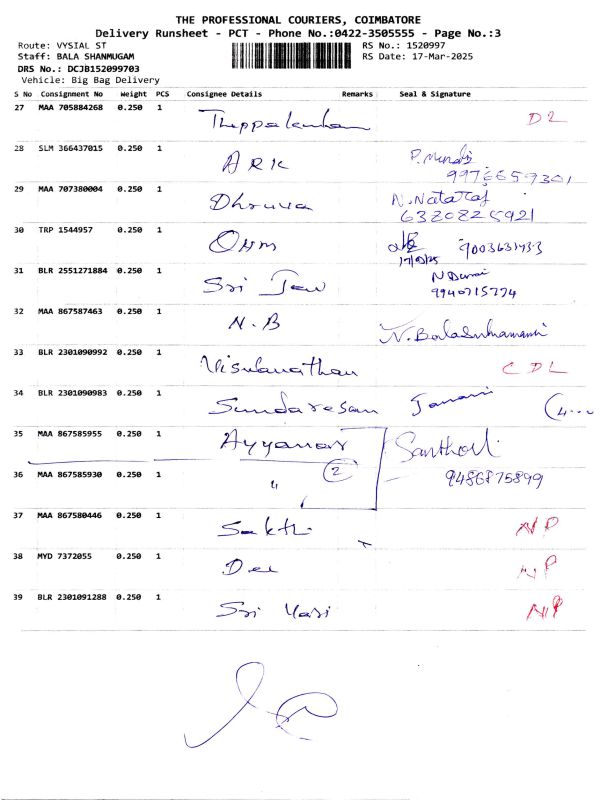 THE PROFESSIONAL COURIERS, COIMBATORE
Delivery Runsheet - PCT - Phone No.:0422-3505555 - Page No.:3
Route: VYSIAL ST RS No.: 1520997
Staff: BALA SHANMUGAM RS Date: 17-Mar-2025
DRS No.: DCJB152099703
Vehicle: Big Bag Delivery
S No Consignment No Weight PCS Consignee Details Remarks Seal & Signature
27 MAA 705884268 0.250 1 D2
28 SLM 366437015 0.250 1 ARK
9976659301
29 MAA 707380004 0.250 1 Dhruva N. Nataraj
6320825921
30 TRP 1544957 0.250 1 Ohm 9003631433
17/03/25
31 BLR 2551271884 0.250 1 Sri N Durai
9940715774
32 MAA 867587463 0.250 1 N.B
33 BLR 2301090992 0.250 1 Visulanathan CDL
34 BLR 2301090983 0.250 1 Sundaresan Janani
35 MAA 867585955 0.250 1 Ayyanar
36 MAA 867585930 0.250 1 " 2 9486875899
37 MAA 867580446 0.250 1 Sakthi NP
38 MYD 7372055 0.250 1 NP
39 BLR 2301091288 0.250 1 Sri NP